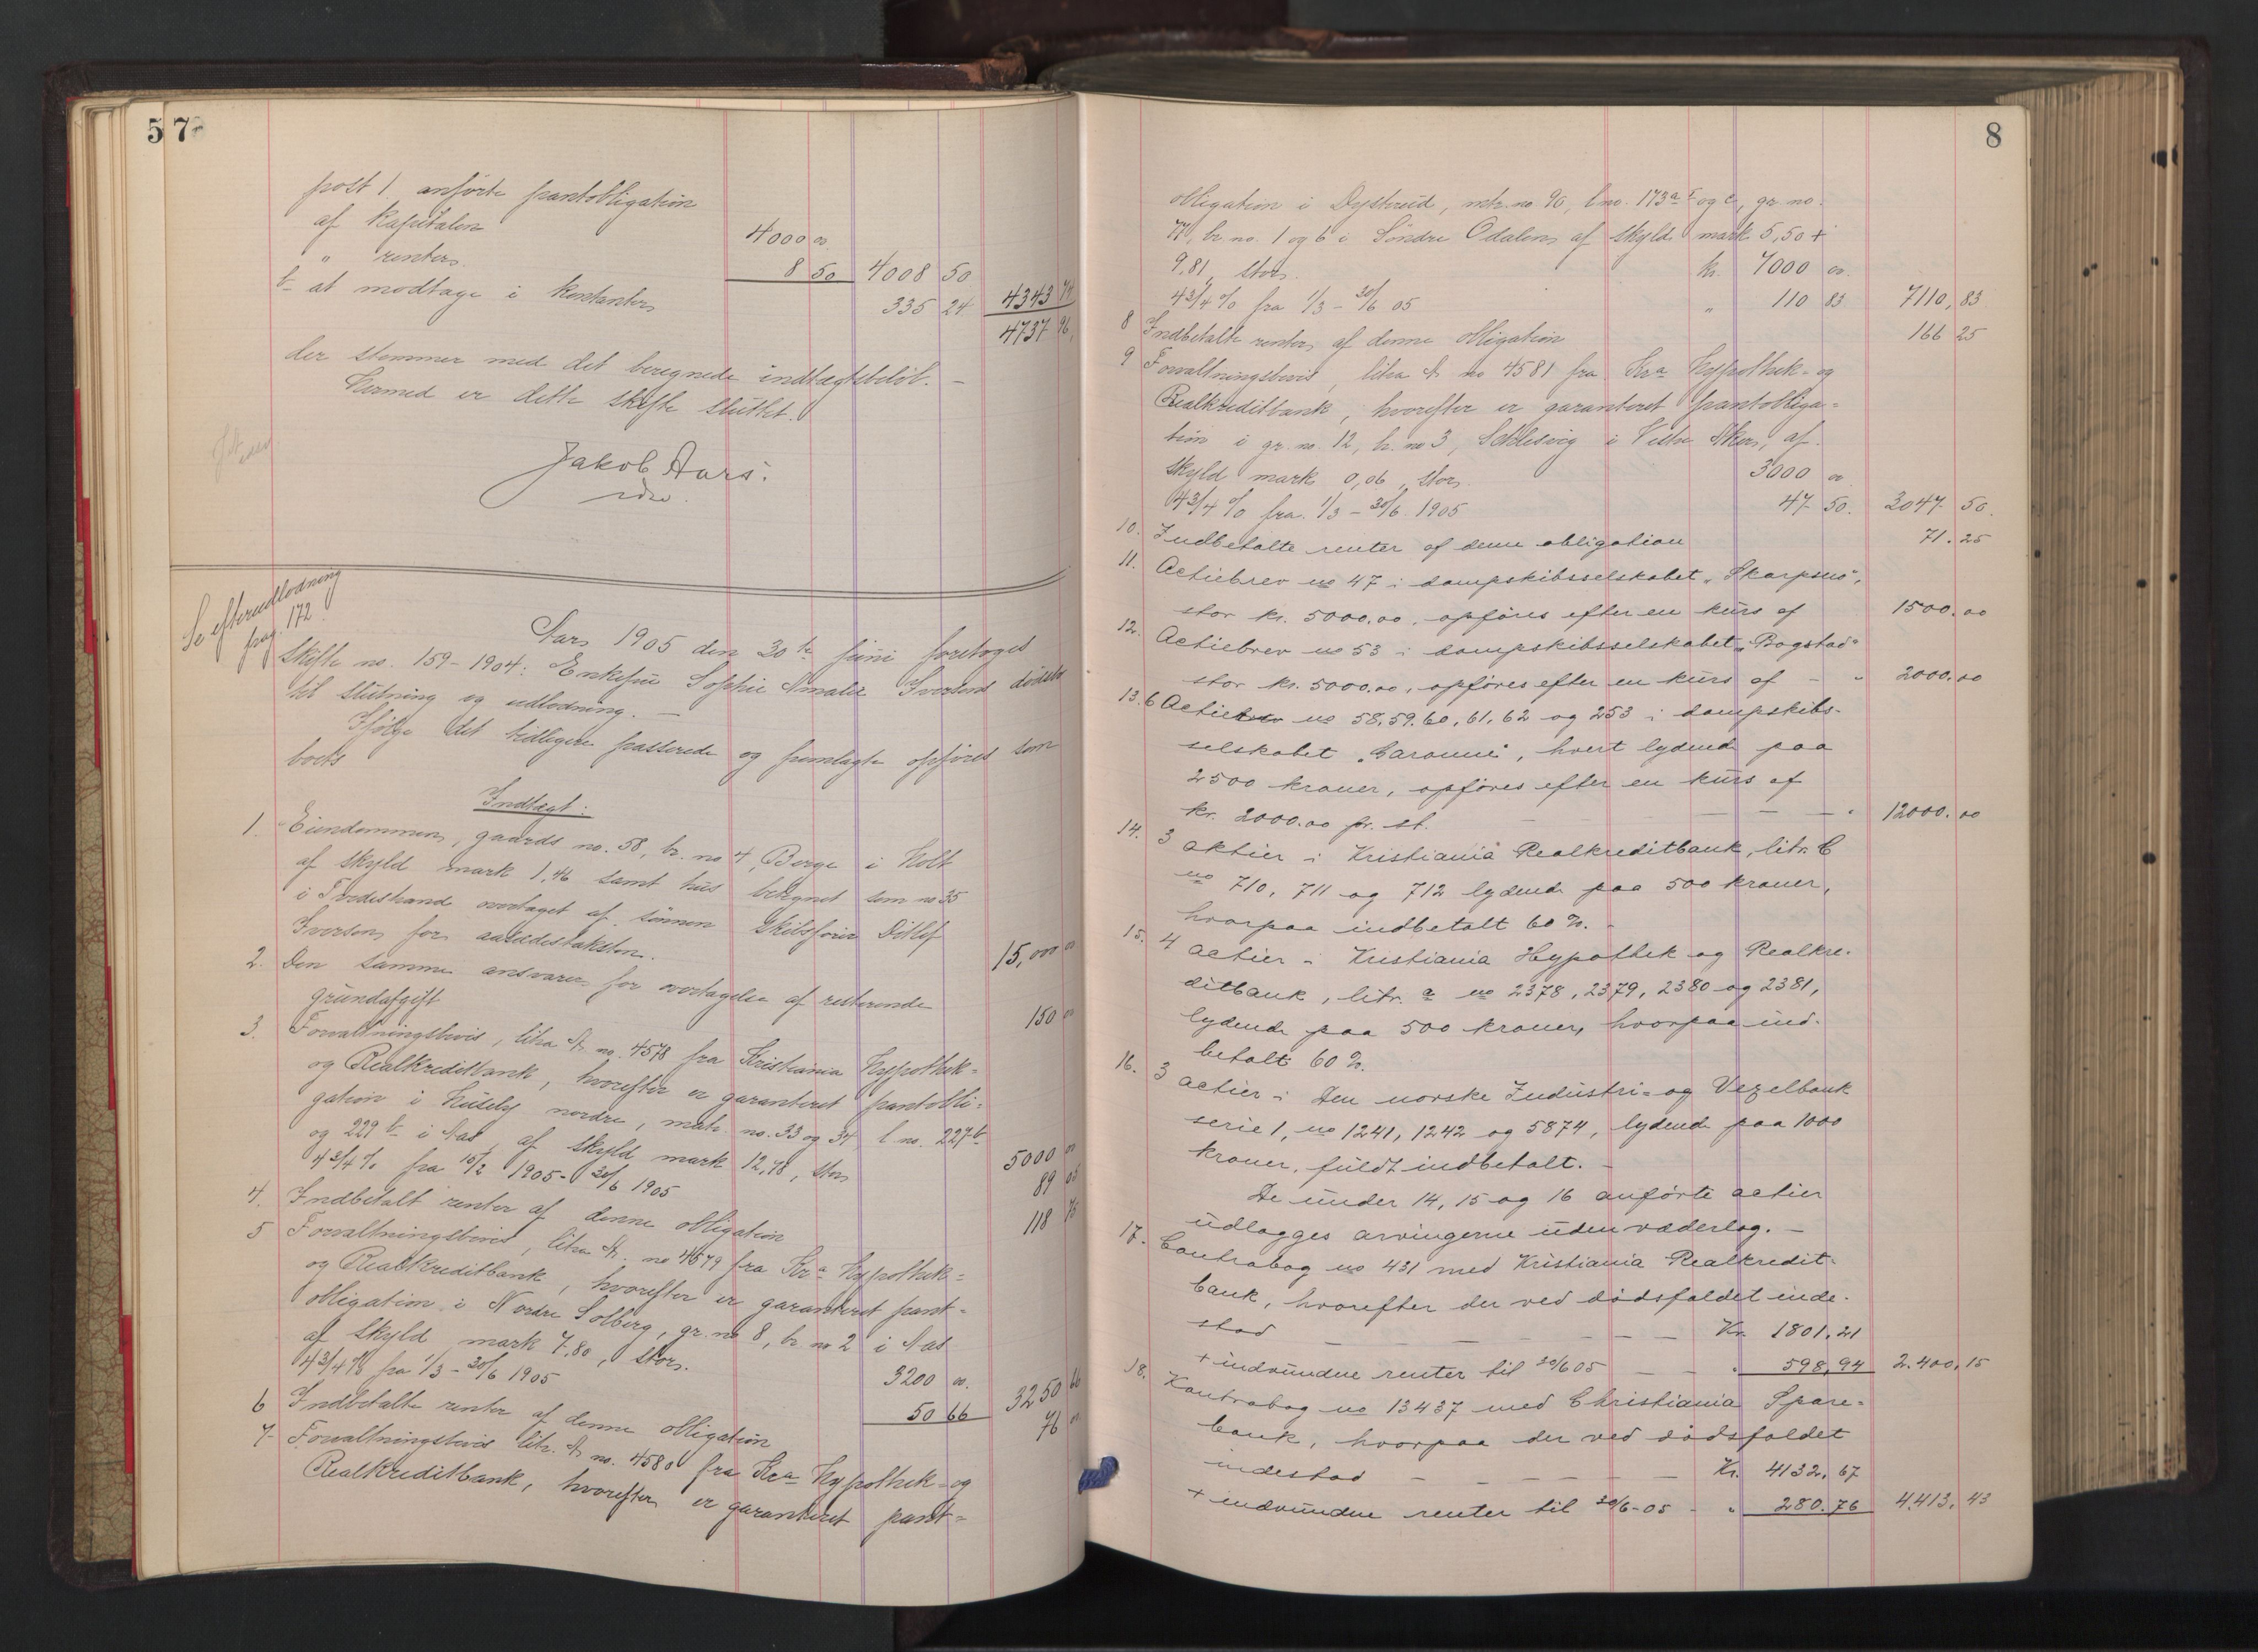 57
post 1. anførte pantobligation
af kapitalen 4000 00
" renter 8 50 4008 50
b– at modtage i kontanter 335 24 4343 74
4737 96
der stemmer med det beregnede indtægtsbeløb. –
Hermed er dette skifte sluttet.
Jakob Aars.
Se efterudlodning
pag. 172.
Aar 1905 den 30te juni foretoges
skifte no. 159–1904: Enkefru Sophie Amalie Iversens dødsbo
til slutning og udlodning. –
Ifølge det tidligere passerede og fremlagte opføres som
boets
Indtægt:
1. Eiendommen, gaards no. 58, br. no 4, Borge i Holt
af skyld mark 1,46 samt hus betegnet som no 35
i Tvedestrand overtaget af sønnen skibsfører Ditlef
Iversen for aasædestaksten. 15,000 00
2. Den samme ansvarer for overtagelse af resterende
grundafgift 150 00
3. Forvaltningsbevis, litra A no. 4578 fra Kristiania Hypothek-
og Realkreditbank, hvorefter er garanteret pantobli-
gation i Huseby nordre, matr. no. 33 og 34, l no. 227b
og 229 b i Aas, af skyld mark 12,78, stor 5000 00
4 3/4 % fra 15/2 1905 – 30/6 1905 89 05
4. Indbetalt renter af denne obligation 118 75
5 Forvaltningsbevis, litra A. no 4579 fra Kra Hypothek-
og Realkreditbank, hvorefter er garanteret pant-
obligation i Nordre Solberg, gr. no 8, br. no 2 i Aas
af skyld mark 7,80, stor. 3200 00.
4 3/4 % fra 1/3 – 30/6 1905 50 66 3250 66
6 Indbetalte renter af denne obligation 76 00
7 Forvaltningsbevis litr. A no. 4580 fra Kra Hypothek- og
Realkreditbank, hvorefter er garanteret pant-
8
obligation i Dystrud, mtr. no. 90, l no. 173a og c, gr. no.
77, br. no. 1 og 6 i Søndre Odalen, af skyld mark 5,50 +
9,81, stor. kr. 7000 00.
4 3/4 % fra 1/3 – 30/6 05 " 110 83 7110,83
8 Indbetalte renter af denne obligation 166 25
9 Forvaltningsbevis, litra A no 4581 fra Kra Hypothek- og
Realkreditbank, hvorefter er garanteret pantobliga-
tion i gr. no. 12, br. no 3, Schlesvig i Vestre Aker, af
skyld mark 0,06, stor. 3000 00
4 3/4 % fra 1/3 – 30/6 1905 47 50. 3047 50.
10. Indbetalte renter af denne obligation 71. 25
11. Actiebrev no 47 i dampskibsselskabet "Skarpsno",
stor kr. 5000.00, opføres efter en kurs af 1500.00
12. Actiebrev no 53 i dampskibsselskabet "Bogstad"
stor kr. 5000.00, opføres efter en kurs af – " 2000.00
13. 6 Actie no 58, 59, 60, 61, 62 og 253 i dampskibs-
selskabet "Garonne", hvert lydende paa
2500 kroner, opføres efter en kurs af
kr. 2000.00 pr. st. – – – " 12000.00
14. 3 aktier i Kristiania Realkreditbank, litr. C
no 710, 711 og 712 lydende paa 500 kroner,
hvorpaa indbetalt 60 %. –
15. 4 actier i Kristiania Hypothek og Realkre-
ditbank, litr. a no 2378, 2379, 2380 og 2381,
lydende paa 500 kroner, hvorpaa ind-
betalt 60 %.
16. 3 actier i Den norske Industri- og Vexelbank
serie 1, no 1241, 1242 og 5874, lydende paa 1000
kroner, fuldt indbetalt. –
De under 14, 15 og 16 anførte actier
udlægges arvingerne uden vederlag. –
17. Contrabog no 431 med Kristiania Realkredit-
bank, hvorefter der ved dødsfaldet inde-
stod – – – – – Kr. 1801.21
+ indvundne renter til 30/6 05 – – " 598,94 2.400,15
18. Kontrabog no 13437 med Christiania Spare-
bank, hvorpaa der ved dødsfaldet
indestod – – – – – Kr. 4132,67
+ indvundne renter til 30/6-05 – " 280.76 4.413,43